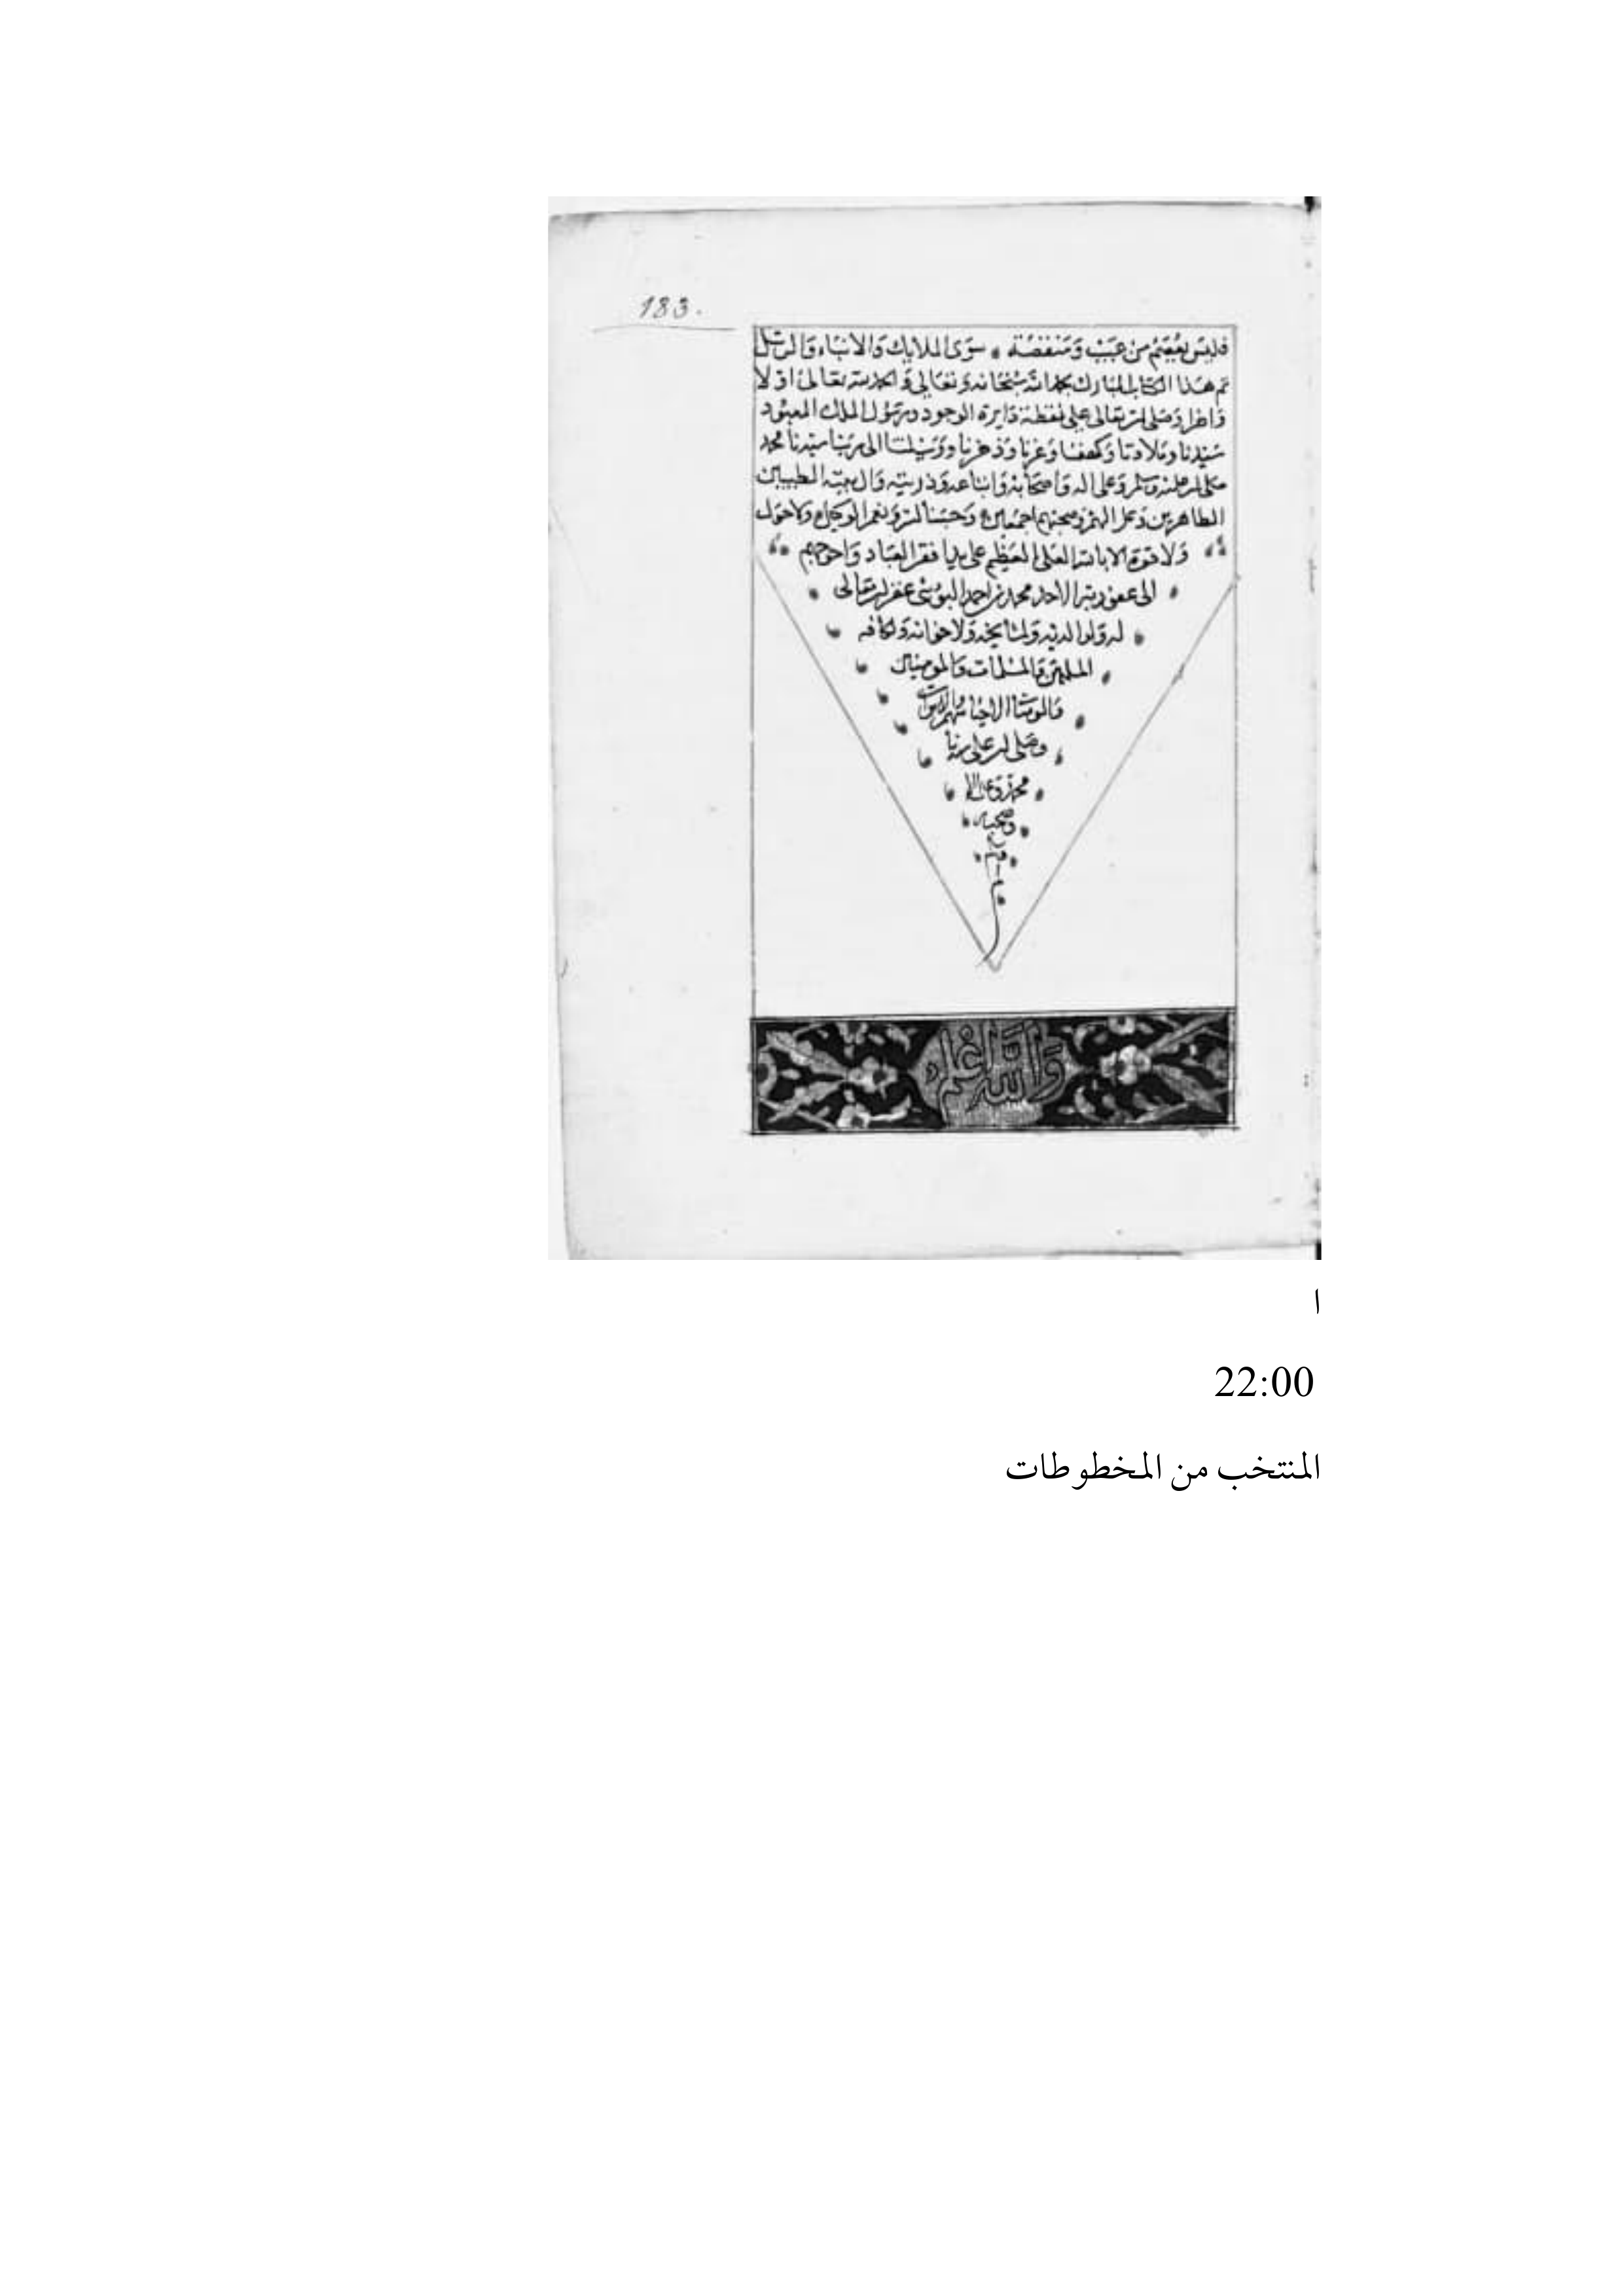 183.
فليس يعصم من عيب ومنقصة سوى الملايك والانبياء والرسل
تم هذا الكتاب المبارك بحمد الله سبحانه وتعالى والحمد لله تعالى اولا
واخرا وصلى الله تعالى على نقطة دايرة الوجود ورسول الملك المعبود
سيدنا وملاذنا وكهفنا وعزنا وذخرنا ووسيلتنا الى ربنا سيدنا محمد
صلى الله عليه وسلم وعلى اله واصحابه واتباعه وذريته وال بيته الطيبين
الطاهرين وصحبتهم اجمعين وحسبنا الله ونعم الوكيل ولا حول
ولا قوة الا بالله العلى العظيم على يد افقر العباد واحوجهم
الى عفو ربه الاحد محمد بن احمد غفر الله تعالى
له ولوالديه ولمشايخه ولاخوانه ولكافة
المسلمين والمسلمات والمومنين
والمومنات الاحيا منهم والاموات
وصلى الله على
محمد وعلى اله
وصحبه
والله اعلم
ا
22:00
المنتخب من المخطوطات